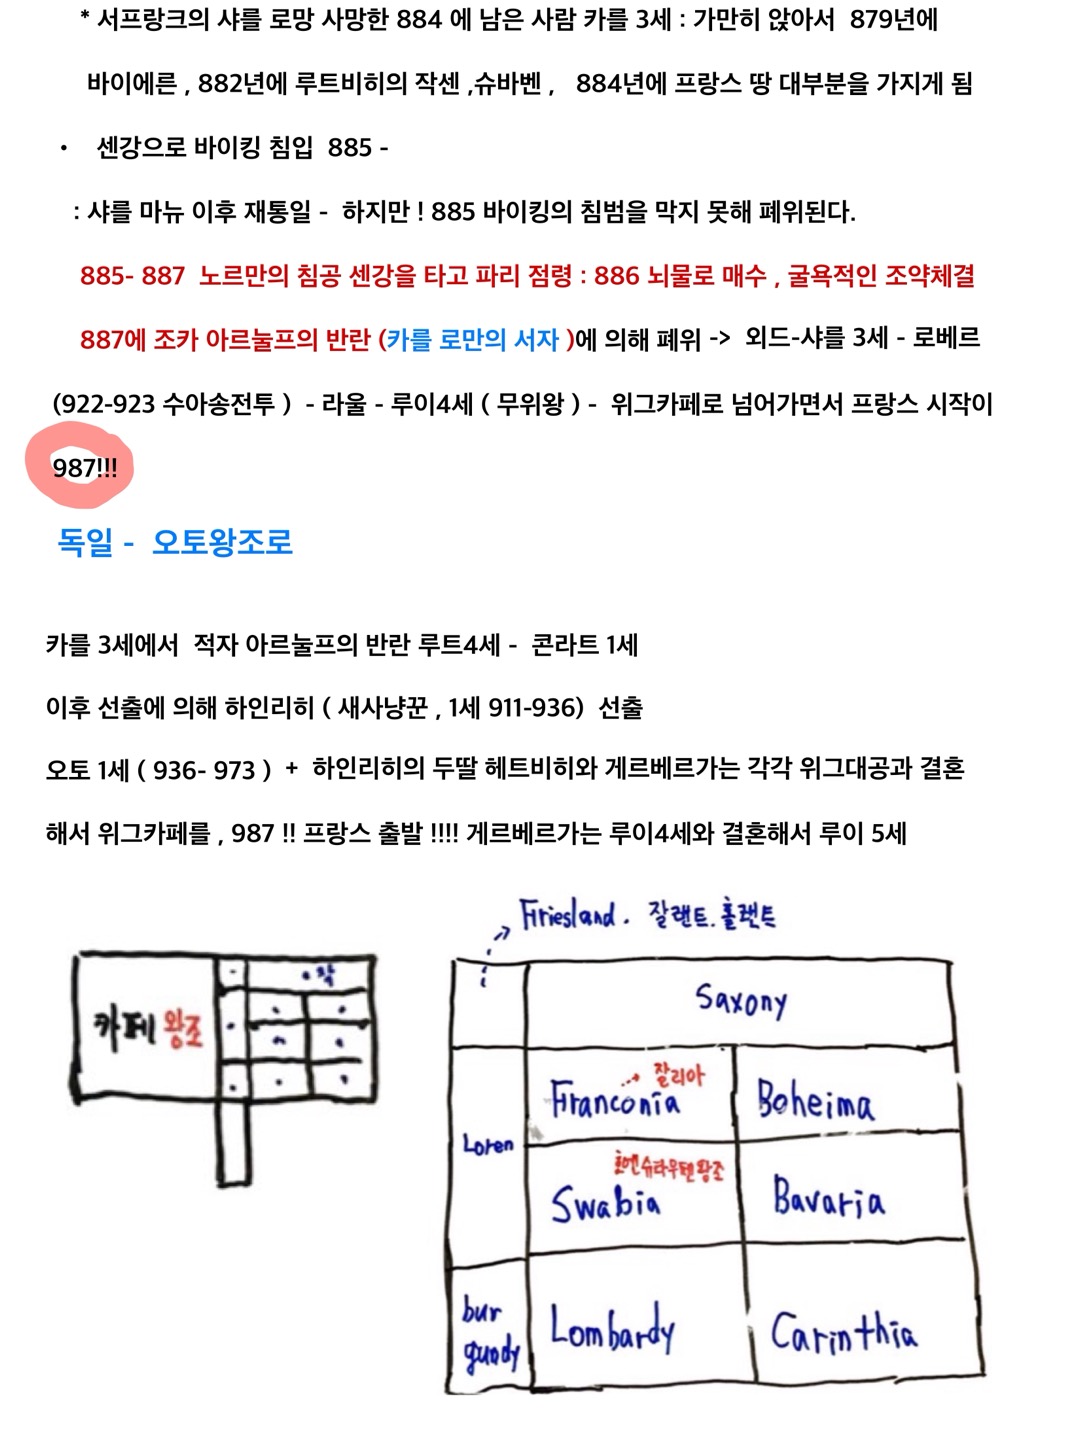 * 서프랑크의 샤를 로망 사망한 884 에 남은 사람 카를 3세 : 가만히 앉아서 879년에
바이에른 , 882년에 루트비히의 작센 ,슈바벤 , 884년에 프랑스 땅 대부분을 가지게 됨
• 센강으로 바이킹 침입 885 -
: 샤를 마뉴 이후 재통일 - 하지만 ! 885 바이킹의 침범을 막지 못해 폐위된다.
885- 887 노르만의 침공 센강을 타고 파리 점령 : 886 뇌물로 매수 , 굴욕적인 조약체결
887에 조카 아르눌프의 반란 (카를 로만의 서자 )에 의해 폐위 -> 외드-샤를 3세 - 로베르
(922-923 수아송전투 ) - 라울 - 루이4세 ( 무위왕 ) - 위그카페로 넘어가면서 프랑스 시작이
987!!!
독일 - 오토왕조로
카를 3세에서 적자 아르눌프의 반란 루트4세 - 콘라트 1세
이후 선출에 의해 하인리히 ( 새사냥꾼 , 1세 911-936) 선출
오토 1세 ( 936- 973 ) + 하인리히의 두딸 헤트비히와 게르베르가는 각각 위그대공과 결혼
해서 위그카페를 , 987 !! 프랑스 출발 !!!! 게르베르가는 루이4세와 결혼해서 루이 5세
Friesland . 잘랜트.홀랜트
작
카페 왕조
Saxony
잘리아
Franconia
Boheima
Loren
호엔슈타우펜왕조
Swabia
Bavaria
bur
gundy
Lombardy
Carinthia